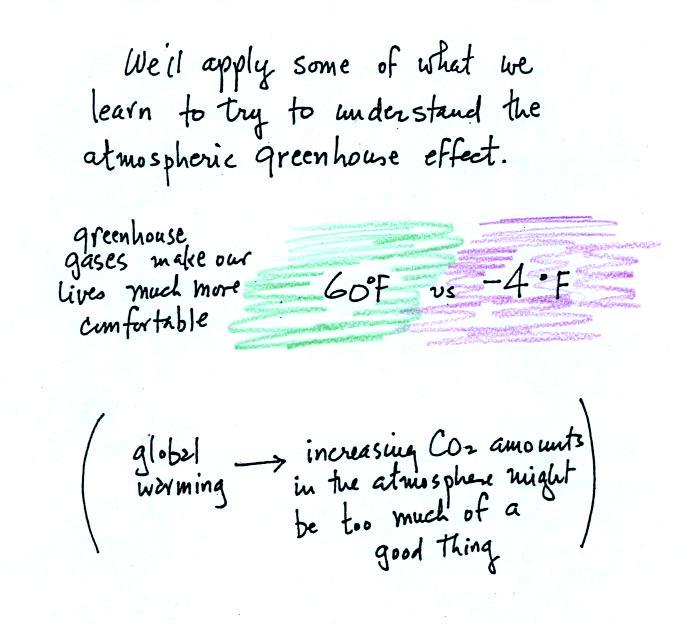 We'll apply some of what we
learn to try to understand the
atmospheric greenhouse effect.
greenhouse
gases make our
lives much more
comfortable
60°F vs -4°F
global
warming
→ increasing CO2 amounts
in the atmosphere might
be too much of a
good thing